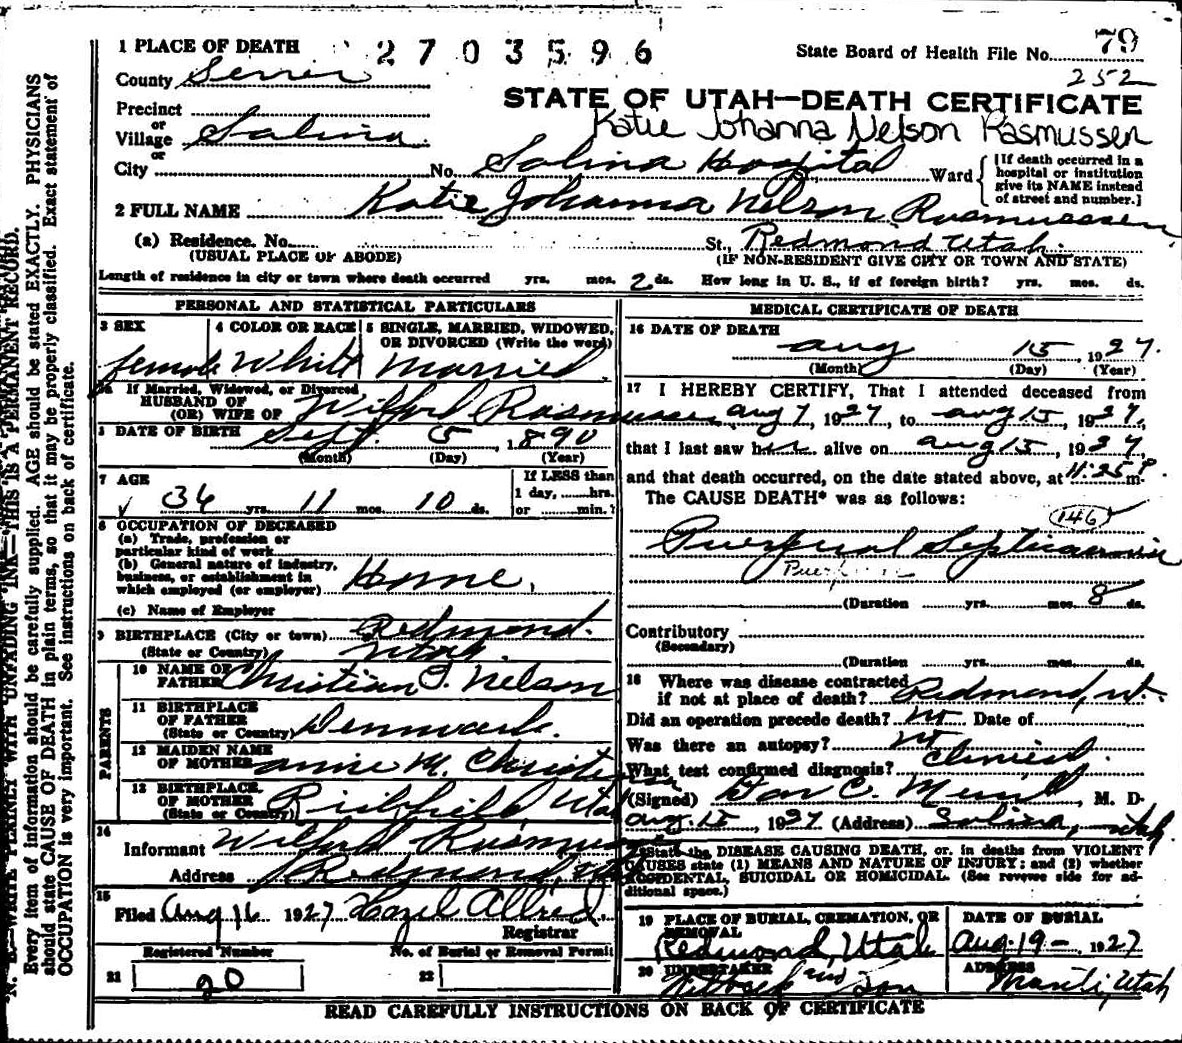 1 PLACE OF DEATH
2703596
State Board of Health File No. 79
252
County Sevier
STATE OF UTAH—DEATH CERTIFICATE
Katie Johanna Nelson Rasmussen
Precinct
or
Village Salina
or
City
No. Salina Hospital Ward
[If death occurred in a hospital or institution give its NAME instead of street and number.]
2 FULL NAME Katie Johanna Nelson Rasmussen
(a) Residence. No. St., Redmond Utah.
(USUAL PLACE OF ABODE) (IF NON-RESIDENT GIVE CITY OR TOWN AND STATE)
Length of residence in city or town where death occurred yrs. mos. 2 ds. How long in U. S., if of foreign birth? yrs. mos. ds.
PERSONAL AND STATISTICAL PARTICULARS
3 SEX female
4 COLOR OR RACE White
5 SINGLE, MARRIED, WIDOWED, OR DIVORCED (Write the word) Married
If Married, Widowed, or Divorced
HUSBAND OF
(OR) WIFE OF Wilford Rasmussen
DATE OF BIRTH Sept. 5, 1890
(Month) (Day) (Year)
7 AGE 36 yrs. 11 mos. 10 ds.
If LESS than 1 day, hrs. or min.?
8 OCCUPATION OF DECEASED
(a) Trade, profession or particular kind of work
(b) General nature of industry, business, or establishment in which employed (or employer) Home.
(c) Name of Employer
9 BIRTHPLACE (City or town) Redmond.
(State or Country) Utah.
PARENTS
10 NAME OF FATHER Christian Nelson
11 BIRTHPLACE OF FATHER (State or Country) Denmark.
12 MAIDEN NAME OF MOTHER Annie M.
13 BIRTHPLACE OF MOTHER (State or Country) Richfield, Utah
14
Informant Wilford Rasmussen
Address Redmond,
15
Filed Aug 16 1927 Hazel Allred
Registrar
Registered Number No. of Burial or Removal Permit
21 20 22
MEDICAL CERTIFICATE OF DEATH
16 DATE OF DEATH
Aug 15, 1927.
(Month) (Day) (Year)
17 I HEREBY CERTIFY, That I attended deceased from
Aug 7, 1927, to Aug 15, 1927,
that I last saw her alive on Aug 15, 1927
and that death occurred, on the date stated above, at 11:25 P m.
The CAUSE DEATH* was as follows:
146
Puerperal Septicaemia
(Duration yrs. mos. 8 ds.
Contributory
(Secondary)
(Duration yrs. mos. ds.
18 Where was disease contracted
if not at place of death? Redmond, Ut.
Did an operation precede death? no Date of
Was there an autopsy? no
What test confirmed diagnosis? Clinical.
(Signed) C. Merrill, M. D.
Aug. 15, 1927 (Address) Salina, Utah
*State the DISEASE CAUSING DEATH, or, in deaths from VIOLENT CAUSES state (1) MEANS AND NATURE OF INJURY; and (2) whether ACCIDENTAL, SUICIDAL OR HOMICIDAL. (See reverse side for additional space.)
19 PLACE OF BURIAL, CREMATION, OR REMOVAL Redmond, Utah
DATE OF BURIAL Aug. 19 - 1927
20 UNDERTAKER and Son
ADDRESS Manti, Utah
READ CAREFULLY INSTRUCTIONS ON BACK OF CERTIFICATE
N. B.—WRITE PLAINLY WITH UNFADING INK—THIS IS A PERMANENT RECORD.
Every item of information should be carefully supplied. AGE should be stated EXACTLY. PHYSICIANS
should state CAUSE OF DEATH in plain terms, so that it may be properly classified. Exact statement of
OCCUPATION is very important. See instructions on back of certificate.